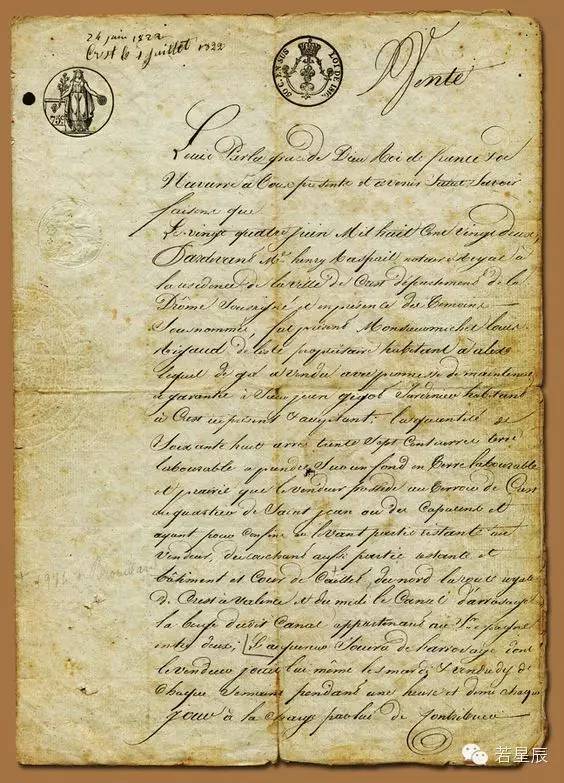 24 juin 1822
Crest le 1 juillet 1822
Vente
75c
Louis Par la grace de Dieu Roi de france & de
Navarre à Tous presents et avenir Salut Savoir
faisons que
Le vingt quatre juin Mil huit Cent vingt deux,
Pardevant Me henry Raspail notaire Royal à
la residence de la ville de Crest département de la
Drôme Soussigné et en présence des Temoins
Sousnommés, fut présent Monsieur michel louis
Rigaud propriétaire habitant à alex
lequel de gré a vendu avec promesse de maintenir
et garantir à Sieur jean habitant
à Crest ici present & acceptant; la quantité de
Soixante huit ares trente Sept Centiares terre
labourable à prendre Sur un fond en terre labourable
et prairie que le vendeur possède au terroir de Crest
au quartier de Saint jean ou des Capucins et
ayant pour confins au levant partie restante au
vendeur, du couchant aussi partie restante et
bâtiment et Cour de du nord la route royale
de Crest à Valence et du midi le Canal d'arrosage
la berge dudit Canal appartenant au
entre deux;
le vendeur jouit lui même les mardi & vendredy de
Chaque Semaine pendant une heure et demi chaque
jour à la charge par lui de Contribuer
若星辰